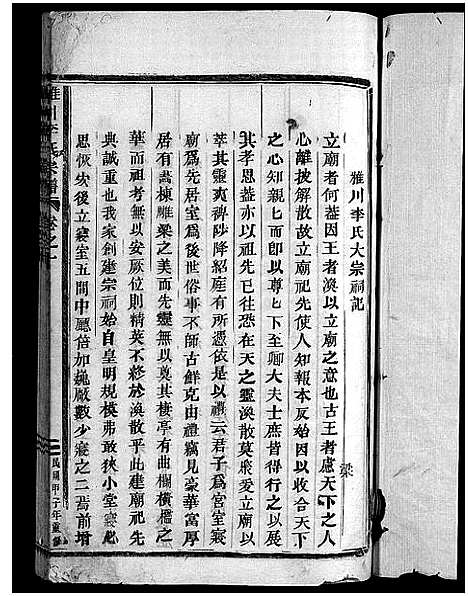 雅川李氏大宗祠記
梁
立廟者何蓋因王者渙以立廟之意也古王者慮天下之人
心離披解散故立廟祀先使人知報本反始因以收合天下
之心知親匕而即以尊匕下至卿大夫士庶皆得行之以展
其孝思蓋亦以祖先已往恐在天之靈渙散莫聚爰立廟以
萃其靈爽俾陟降紹庭有所憑依是以禮云君子爲宮室宗
廟爲先居室爲後世俗事不師古鮮克由禮竊見豪華富厚
居有畵棟雕梁之美而先靈無以奠其棲亭有曲欄橫檻之
華而祖考無以安厥位則精英不終於渙散乎此建廟祀先
典誠重也我家創建宗祠始自皇明規模弗敢狹小堂寢必
思恢然後立寢室五間中廳倍加巍厰數少寢之二焉前增
雅川李氏宗譜 卷之
民國甲子年重修